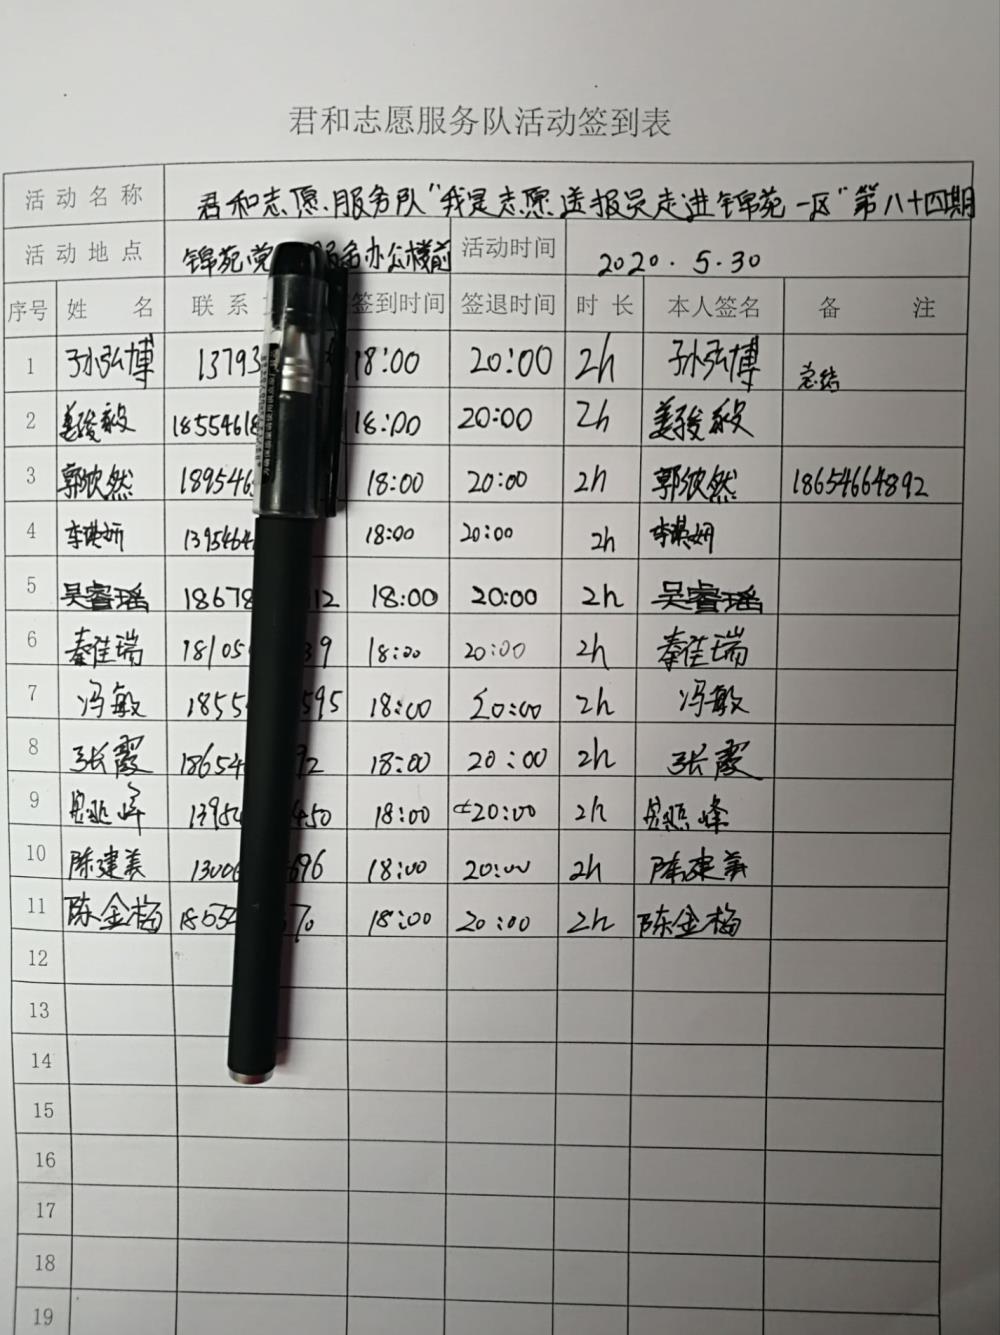 君和志愿服务队活动签到表
活动名称 君和志愿服务队“我是志愿送报员走进锦苑一区”第八十四期
活动地点 锦苑党 服务办公楼前 活动时间 2020.5.30
序号 姓名 联系 签到时间 签退时间 时长 本人签名 备注
1 孙弘博 13793 18:00 20:00 2h 孙弘博 总结
2 姜骏毅 18554618 18:00 20:00 2h 姜骏毅
3 郭浓然 189546 18:00 20:00 2h 郭浓然 18654664892
4 李琪妍 1395464 18:00 20:00 2h 李琪妍
5 吴睿瑶 18678 12 18:00 20:00 2h 吴睿瑶
6 秦佳瑞 18105 39 18:00 20:00 2h 秦佳瑞
7 冯敏 1855 595 18:00 20:00 2h 冯敏
8 张霞 18654 92 18:00 20:00 2h 张霞
9 峰 1395 450 18:00 20:00 2h 峰
10 陈建美 1300 696 18:00 20:00 2h 陈建美
11 陈金梅 18654 70 18:00 20:00 2h 陈金梅
12
13
14
15
16
17
18
19